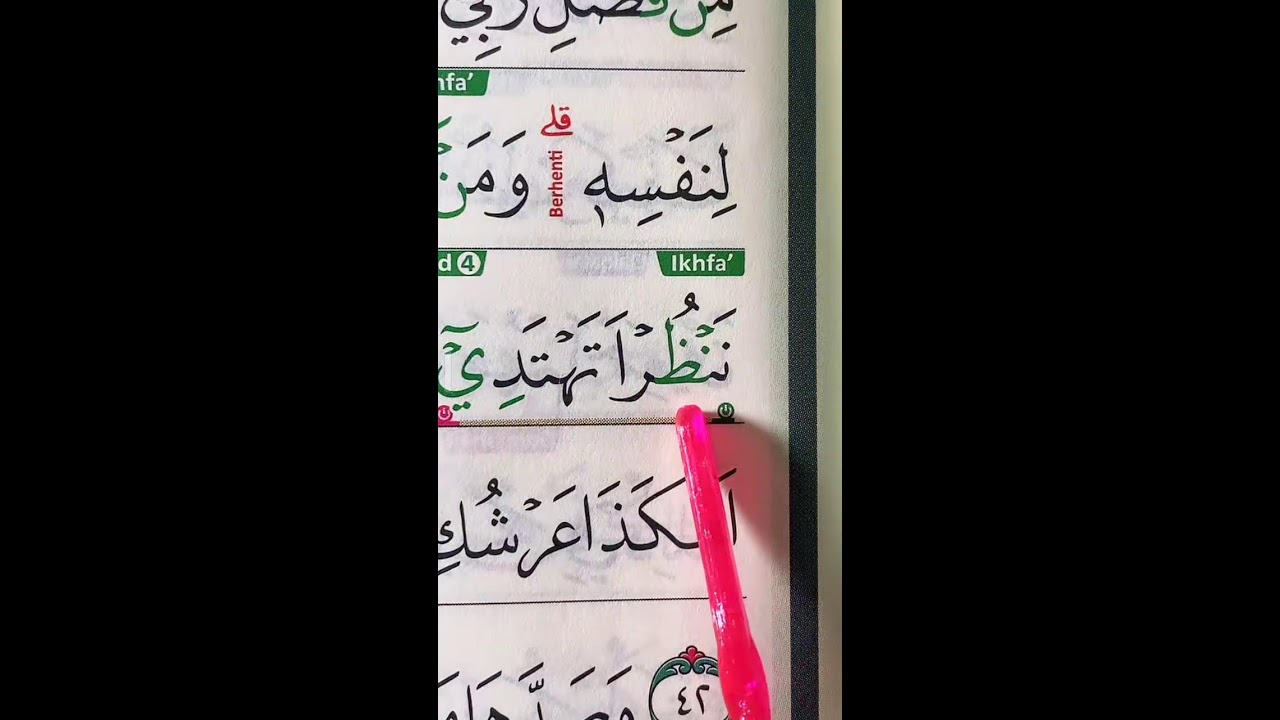 مِنْ فَضْلِ رَبِّيْ
nfa’
لِنَفْسِهٖ قلے Berhenti وَمَنْ
Ikhfa’ d 4
نَنْظُرْ اَتَهْتَدِيْٓ
اَهٰكَذَا عَرْشُكِ
٤٢ وَصَدَّهَا